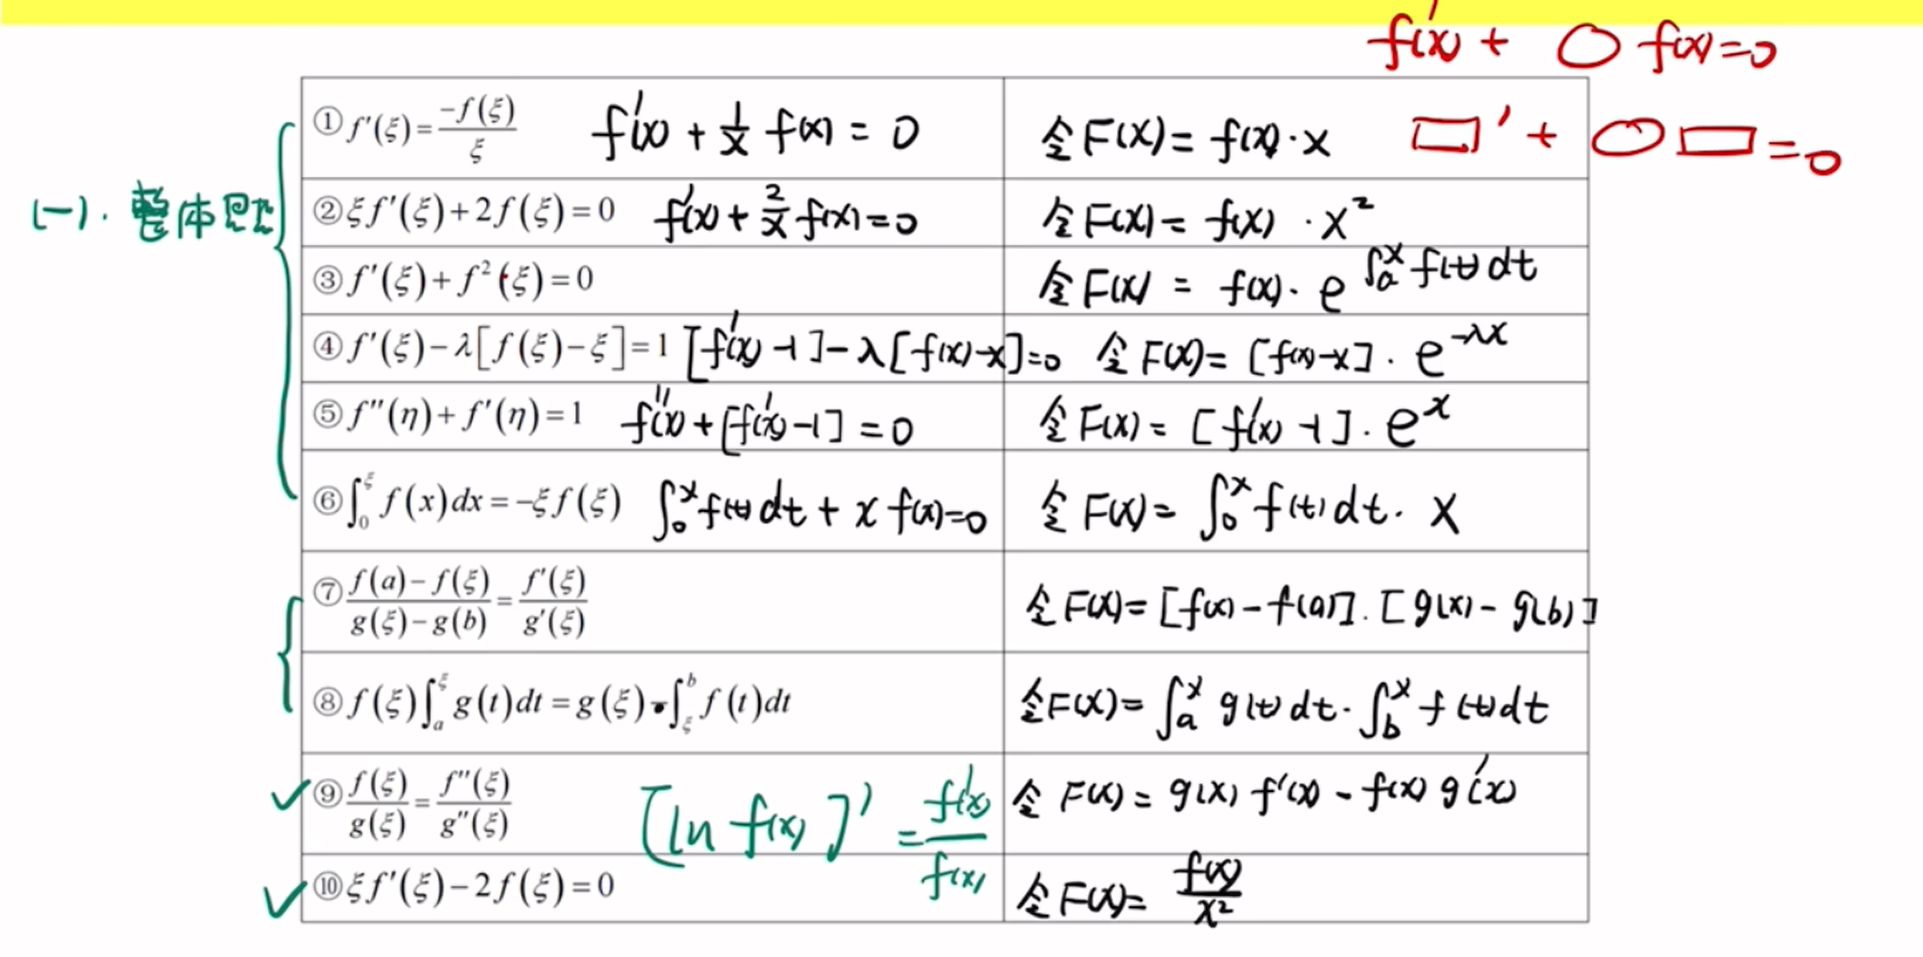 f'(x) + ○ f(x)=0
① f'(ξ)=\frac{-f(ξ)}{ξ} f'(x) + \frac{1}{x} f(x) = 0 令F(x)= f(x)·x □' + ○□=0
(一). 整体思
② ξf'(ξ)+2f(ξ)=0 f'(x)+\frac{2}{x}f(x)=0 令F(x)= f(x) ·x²
③ f'(ξ)+f²(ξ)=0 令F(x) = f(x)· e^{∫_a^x f(t)dt}
④ f'(ξ)−λ[f(ξ)−ξ]=1 [f'(x)-1]-λ[f(x)-x]=0 令F(x)= [f(x)-x]· e^{-λx}
⑤ f''(η)+f'(η)=1 f''(x)+[f'(x)-1]=0 令F(x)= [f'(x)-1]·e^x
⑥ ∫_0^ξ f(x)dx=−ξf(ξ) ∫_0^x f(t)dt + x f(x)=0 令F(x)= ∫_0^x f(t)dt· x
⑦ \frac{f(a)−f(ξ)}{g(ξ)−g(b)}=\frac{f'(ξ)}{g'(ξ)} 令F(x)=[f(x)-f(a)].[g(x)-g(b)]
⑧ f(ξ)∫_a^ξ g(t)dt=g(ξ)·∫_ξ^b f(t)dt 令F(x)=∫_a^x g(t)dt·∫_b^x f(t)dt
⑨ \frac{f(ξ)}{g(ξ)}=\frac{f''(ξ)}{g''(ξ)} [ln f(x)]' = \frac{f'(x)}{f(x)} 令F(x)= g(x) f'(x) - f(x) g'(x)
⑩ ξf'(ξ)−2f(ξ)=0 令F(x)= \frac{f(x)}{x²}